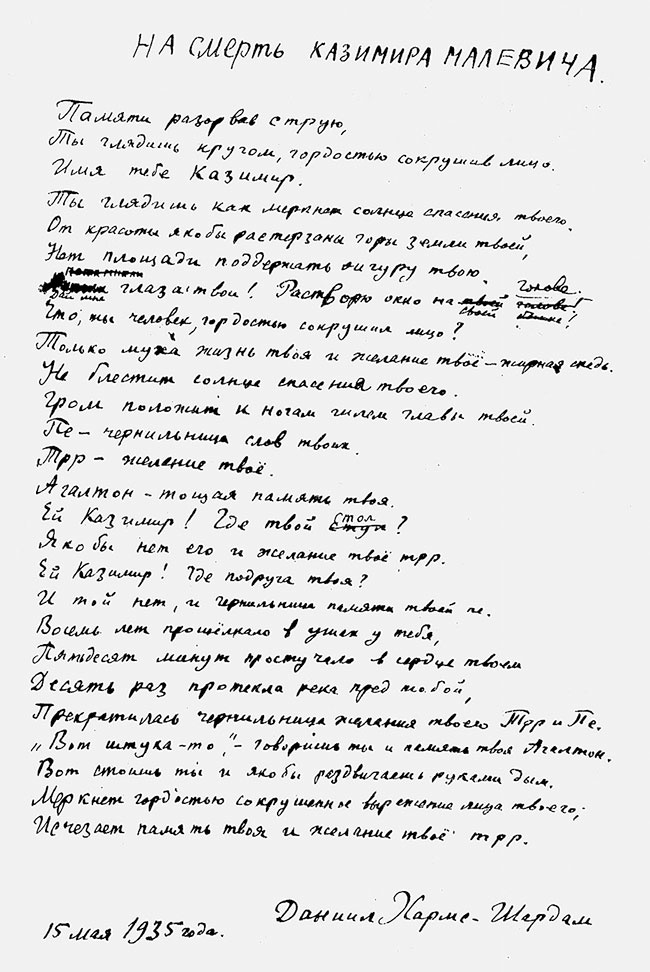 НА СМЕРТЬ КАЗИМИРА МАЛЕВИЧА.
Памяти разорвав струю,
Ты глядишь кругом, гордостью сокрушив лицо.
Имя тебе Казимир.
Ты глядишь как меркнет солнце спасения твоего.
От красоты якобы растерзаны горы земли твоей,
Нет площади поддержать фигуру твою.
Дай мне глаза твои! Растворю окно на своей голове!
Что, ты человек, гордостью сокрушил лицо?
Только муха жизнь твоя и желание твоё – жирная снедь.
Не блестит солнце спасения твоего.
Гром положит к ногам шлем главы твоей.
Пе – чернильница слов твоих.
Трр – желание твоё.
Агалтон – тощая память твоя.
Ей Казимир! Где твой стол?
Якобы нет его и желание твоё трр.
Ей Казимир! Где подруга твоя?
И той нет, и чернильница памяти твоей пе.
Восемь лет прощёлкало в ушах у тебя,
Пятьдесят минут простучало в сердце твоем
Десять раз протекла река пред тобой,
Прекратилась чернильница желания твоего Трр и Пе.
„Вот штука-то", – говоришь ты и память твоя Агалтон.
Вот стоишь ты и якобы раздвигаешь руками дым.
Меркнет гордостью сокрушенное выражение лица твоего;
Исчезает память твоя и желание твоё трр.
Даниил Хармс – Шардам
15 мая 1935 года.